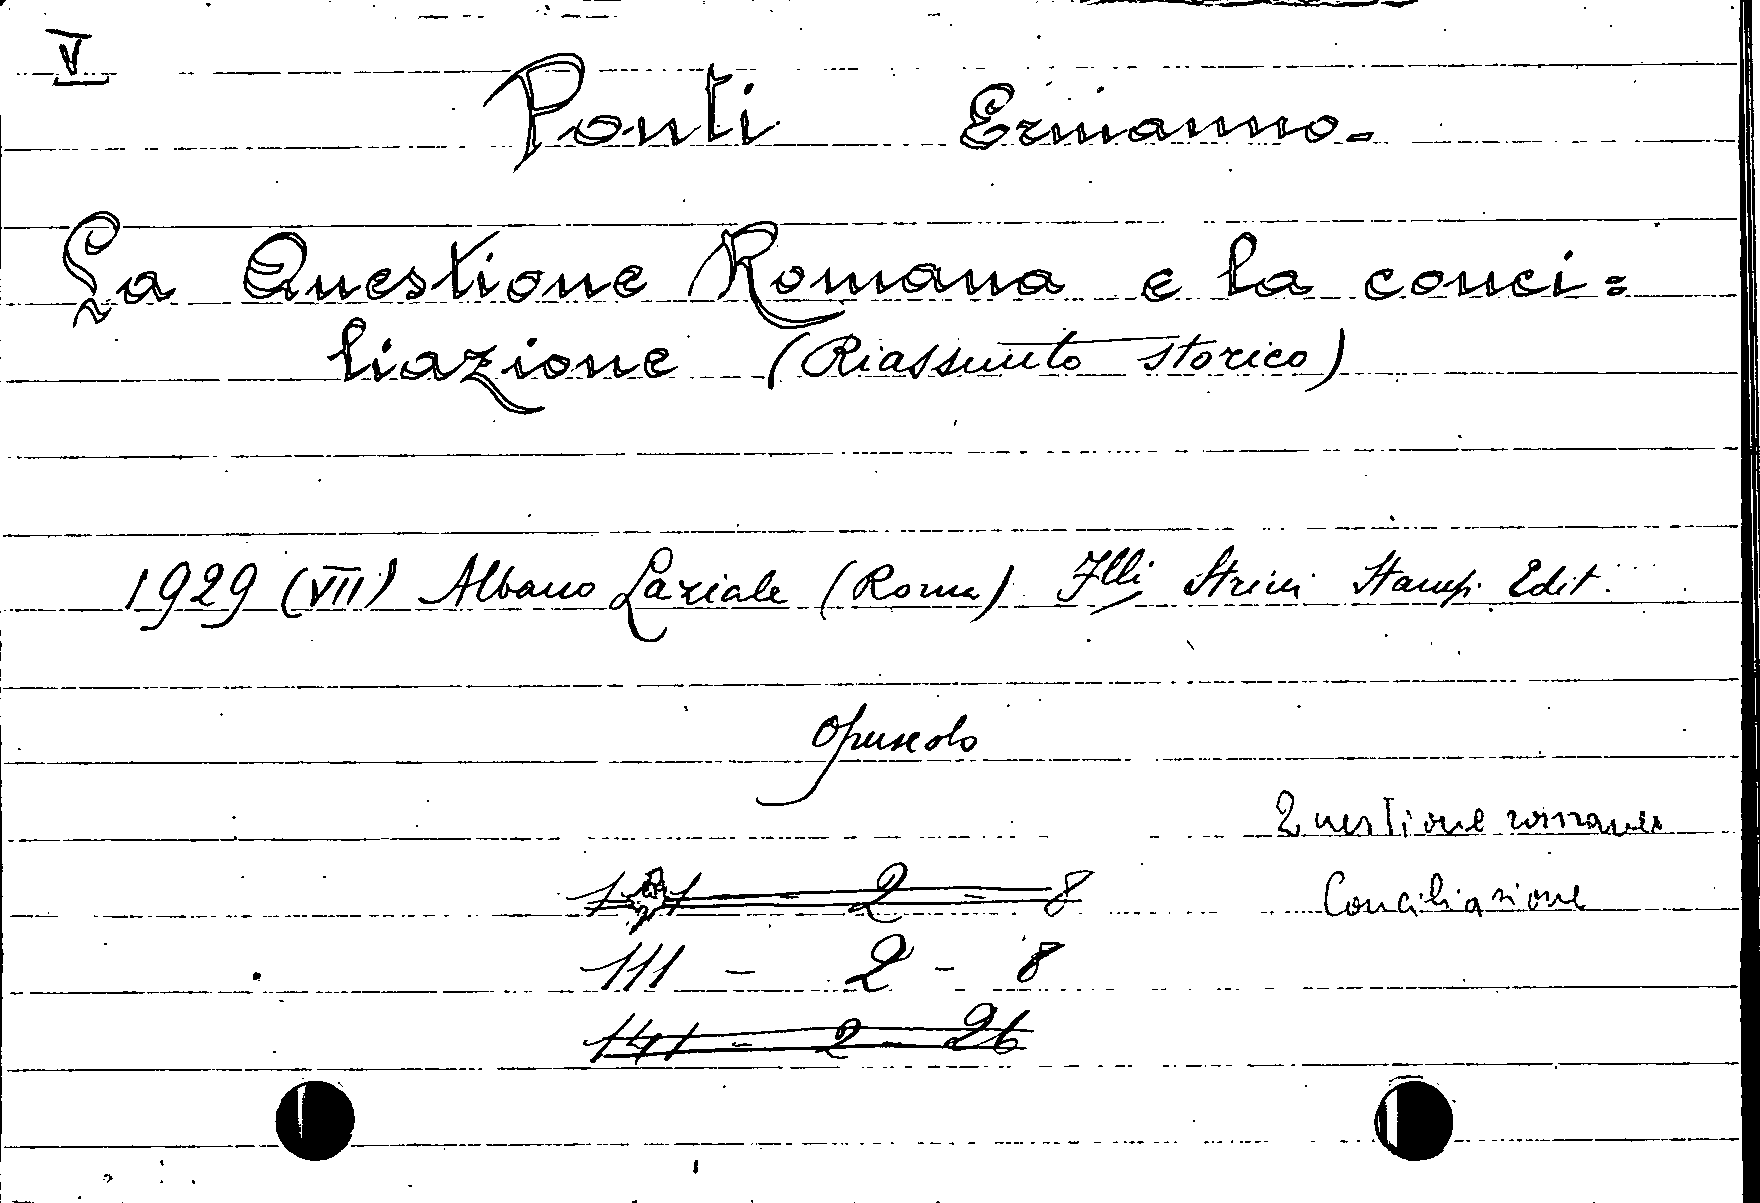 V
Ponti Ermanno-
La Questione Romana e la conci=
liazione (Riassunto storico)
1929 (VII) Albano Laziale (Roma) Flli Strini Stamp. Edit.
Opuscolo
Questione romana
Conciliazione
2 - 8
111 - 2 - 8
141 - 2 - 26